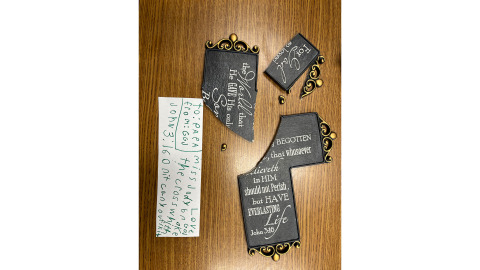 For
God
so loved
the World that
He GAVE His only
BEGOTTEN
that whosoever
in HIM
should not Perish,
but HAVE
EVERLASTING
Life
John 3:16
To: PAPA miss Judy Love
From: GOD the cross
John 3:16